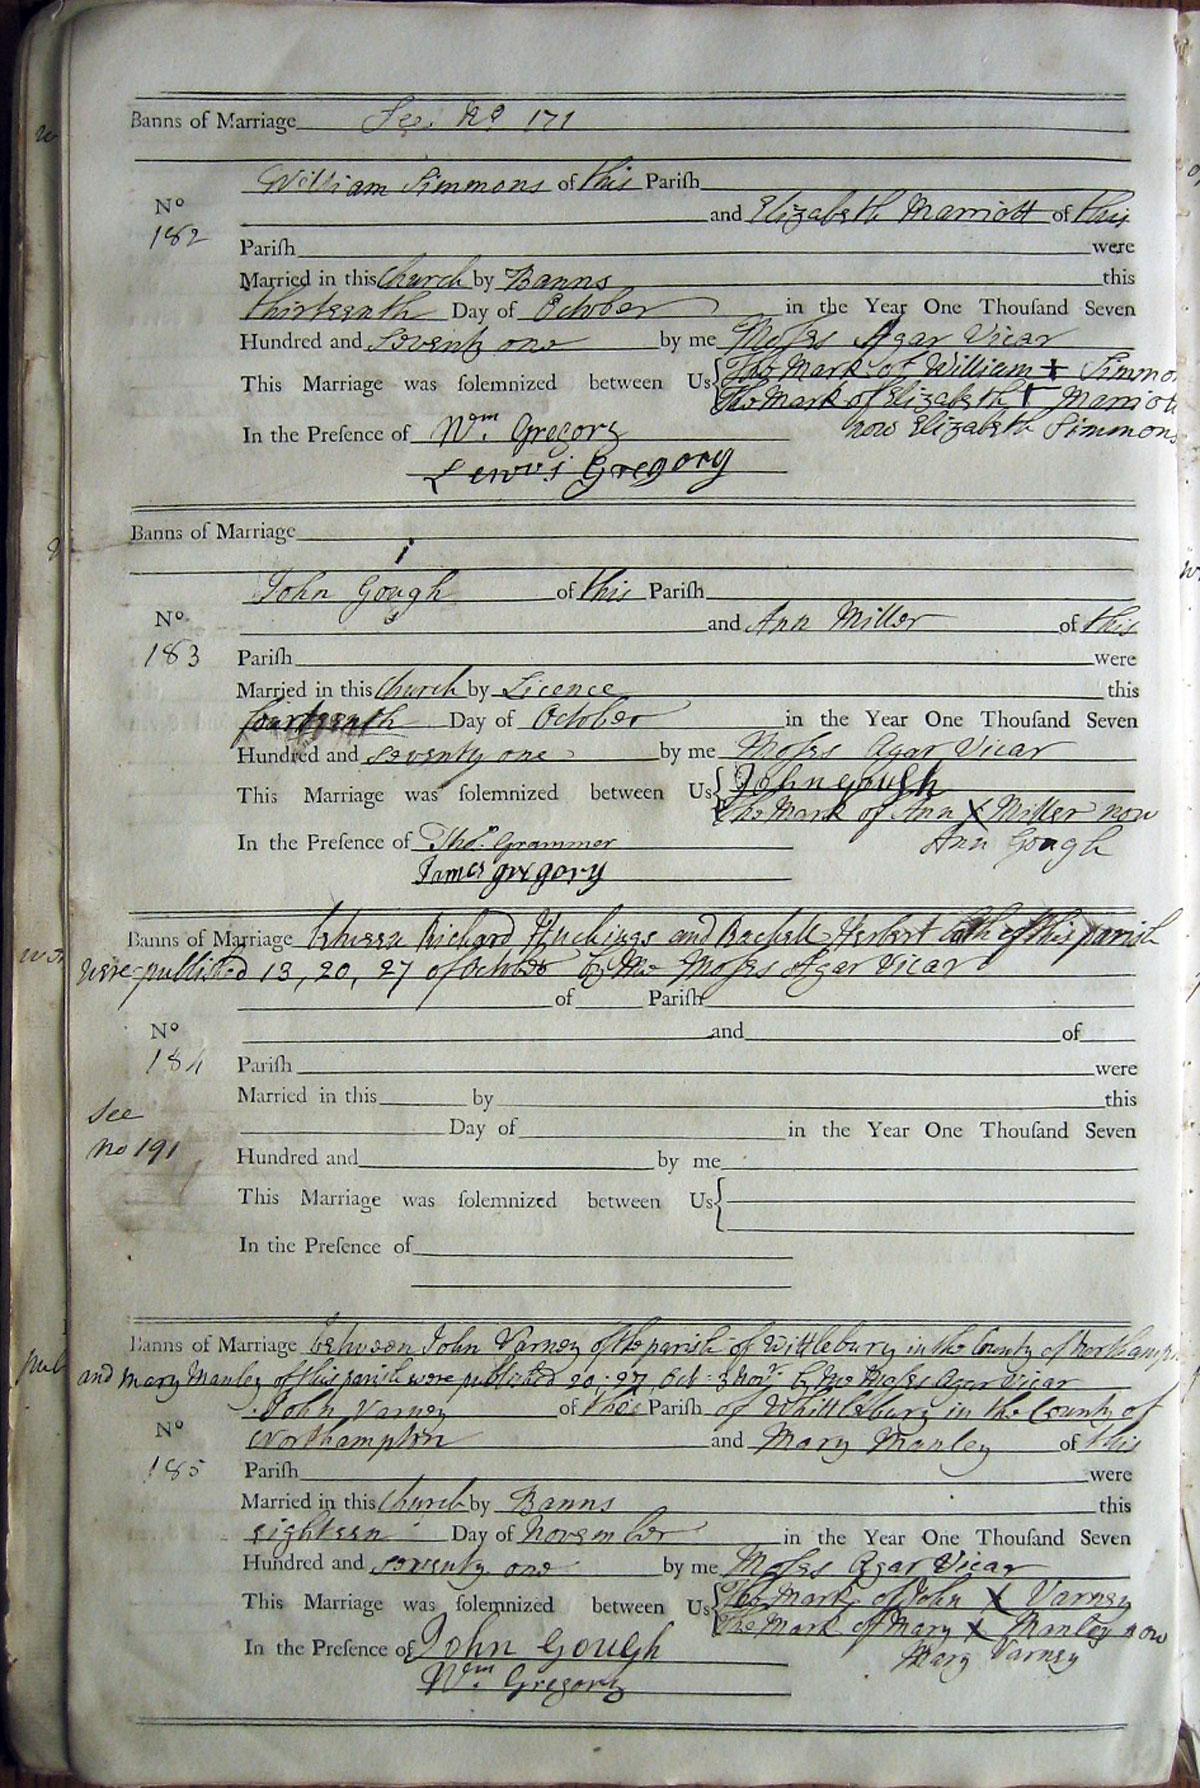 Banns of Marriage See. No 171
William Simmons of this Pariſh
No
182
and Elizabeth Marriott of this
Pariſh were
Married in this Church by Banns this
thirteenth Day of October in the Year One Thouſand Seven
Hundred and seventy one by me Moſes Agar Vicar
This Marriage was ſolemnized between Us { The Mark of William + Simmo
The Mark of Elizabeth + Marriott
now Elizabeth Simmons
In the Preſence of Wm. Gregory
Lewis Gregory
Banns of Marriage
John Gough of this Pariſh
No
183
and Ann Miller of this
Pariſh were
Married in this Church by Licence this
fourteenth Day of October in the Year One Thouſand Seven
Hundred and seventy one by me Moſes Agar Vicar
This Marriage was ſolemnized between Us { John gough
The Mark of Ann X Miller now
Ann Gough
In the Preſence of Thos. Grammer
James gregory
Banns of Marriage between Richard Huckings and Herbert both of this parish
were published 13, 20, 27 of October by Me Moſes Agar Vicar
of Pariſh
No
184
and of
Pariſh were
Married in this by this
See
no 191
Day of in the Year One Thouſand Seven
Hundred and by me
This Marriage was ſolemnized between Us {
In the Preſence of
Banns of Marriage between John Varney of the parish of Wittlebury in the County of Northamp
and Mary Manley of this parish were published 20, 27, Oct: 3 Novr. by Me Moſes Agar Vicar
John Varney of the Pariſh of Whittlebury in the County of
No
185
Northampton and Mary Manley of this
Pariſh were
Married in this Church by Banns this
eighteen Day of November in the Year One Thouſand Seven
Hundred and seventy one by me Moſes Agar Vicar
This Marriage was ſolemnized between Us { The Mark of John X Varney
The Mark of Mary X Manley now
Mary Varney
In the Preſence of John Gough
Wm. Gregory